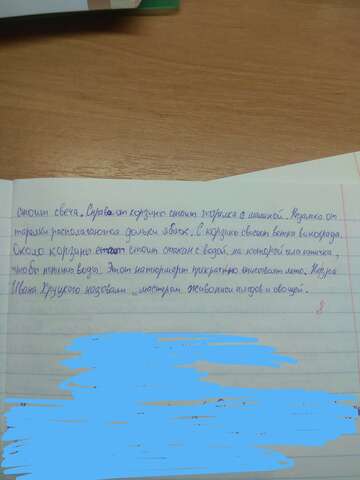 стоит свеча. Справа от корзины стоит тарелка с малиной. Недалеко от
тарелки располагаются дольки яблок. С корзины свисает ветка винограда.
Около корзины стоит стоит стакан с водой, на которой
чтобы
вода. Этот натюрморт прекрасно описывает лето. Недра
Ивана Хруцкого называли „мастером живописи плодов и овощей.